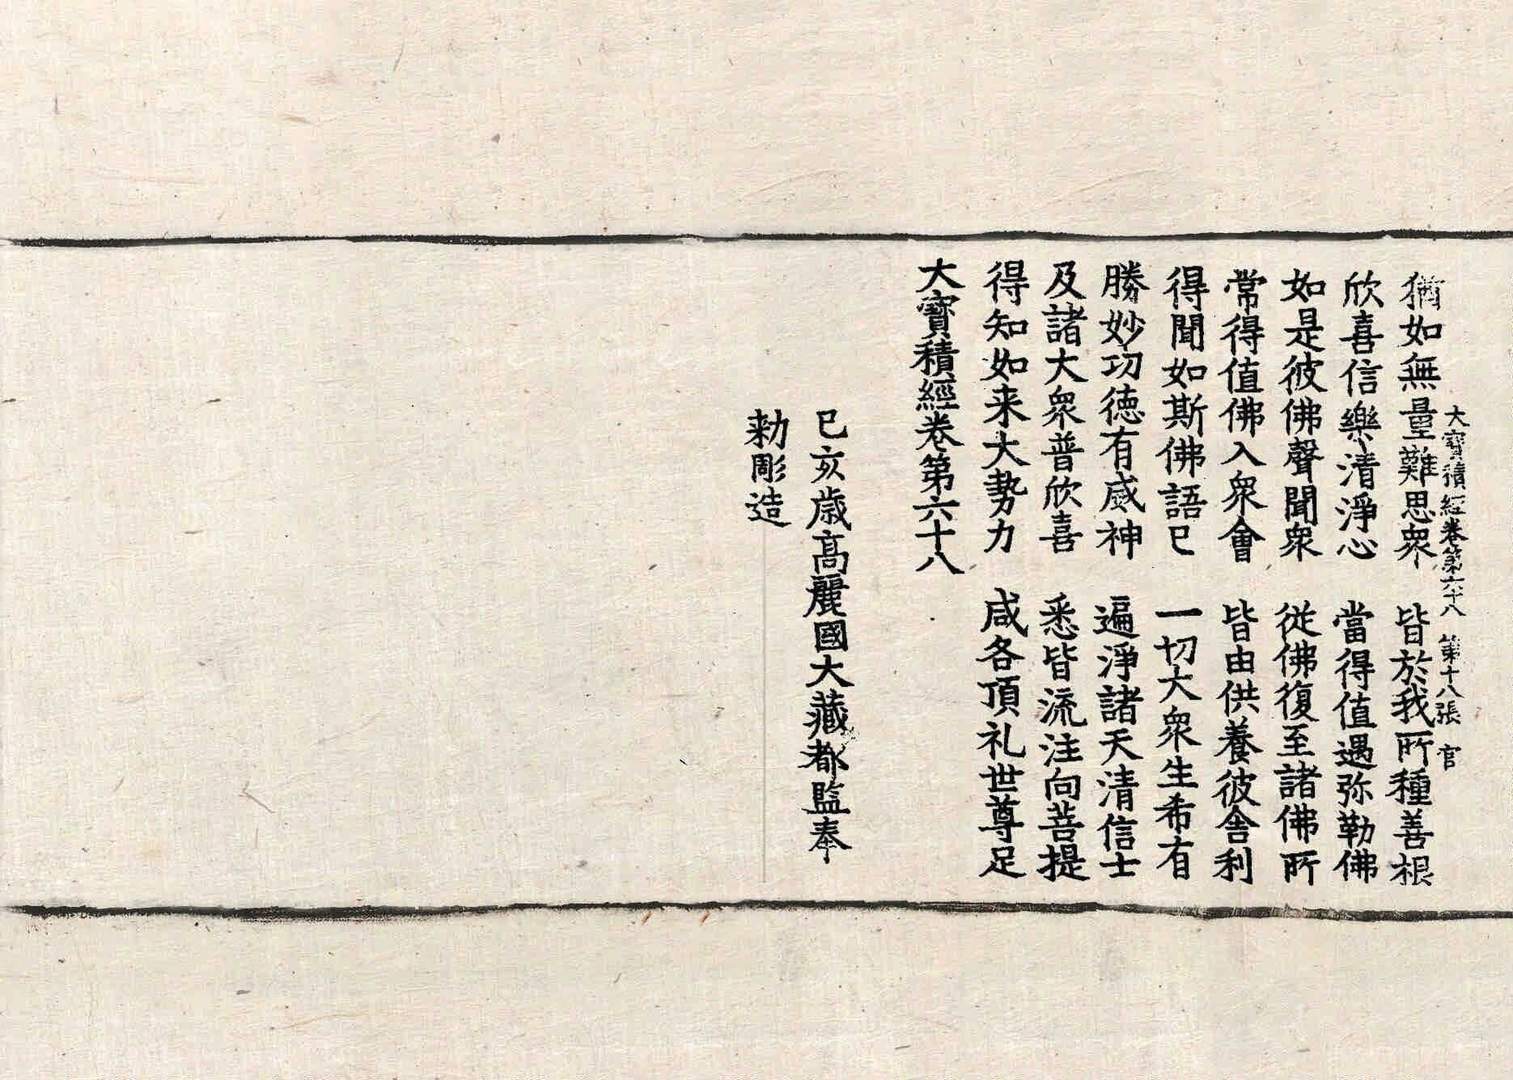 大寶積經卷第六十八　第十八張　官
猶如無量難思衆　皆於我所種善根
欣喜信樂清淨心　當得值遇弥勒佛
如是彼佛聲聞衆　從佛復至諸佛所
常得值佛入衆會　皆由供養彼舍利
得聞如斯佛語已　一切大衆生希有
勝妙功德有威神　遍淨諸天清信士
及諸大衆普欣喜　悉皆流注向菩提
得知如来大勢力　咸各頂礼世尊足
大寶積經卷第六十八
已亥歲高麗國大藏都監奉
勅彫造